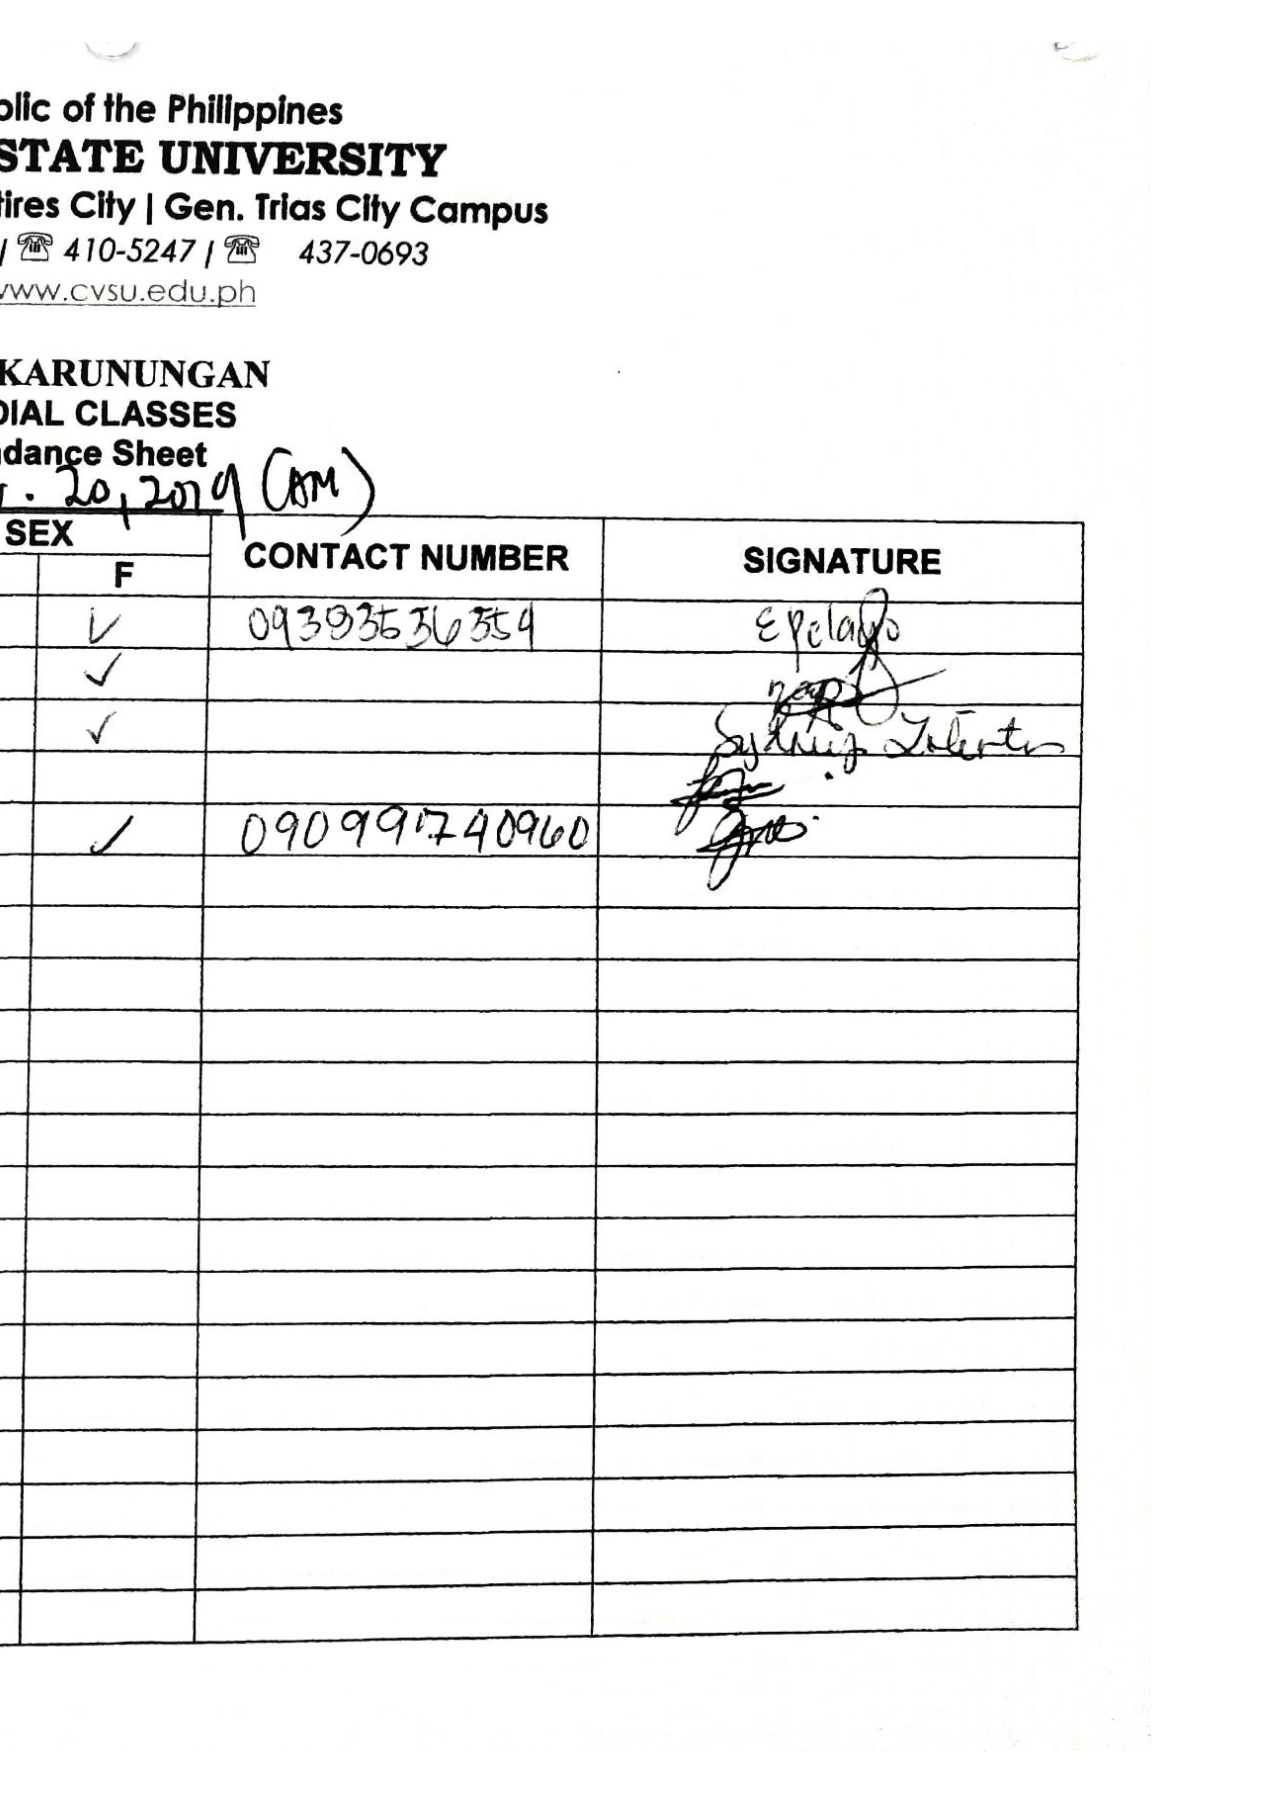 olic of the Philippines
STATE UNIVERSITY
tires City | Gen. Trias City Campus
/ ☎ 410-5247 / ☎ 437-0693
www.cvsu.edu.ph
KARUNUNGAN
DIAL CLASSES
dance Sheet
. 20, 2019 (AM)
SEX CONTACT NUMBER SIGNATURE
F
✓ 09383536354 Epelayo
✓
✓ Sydney
✓ 090991740960